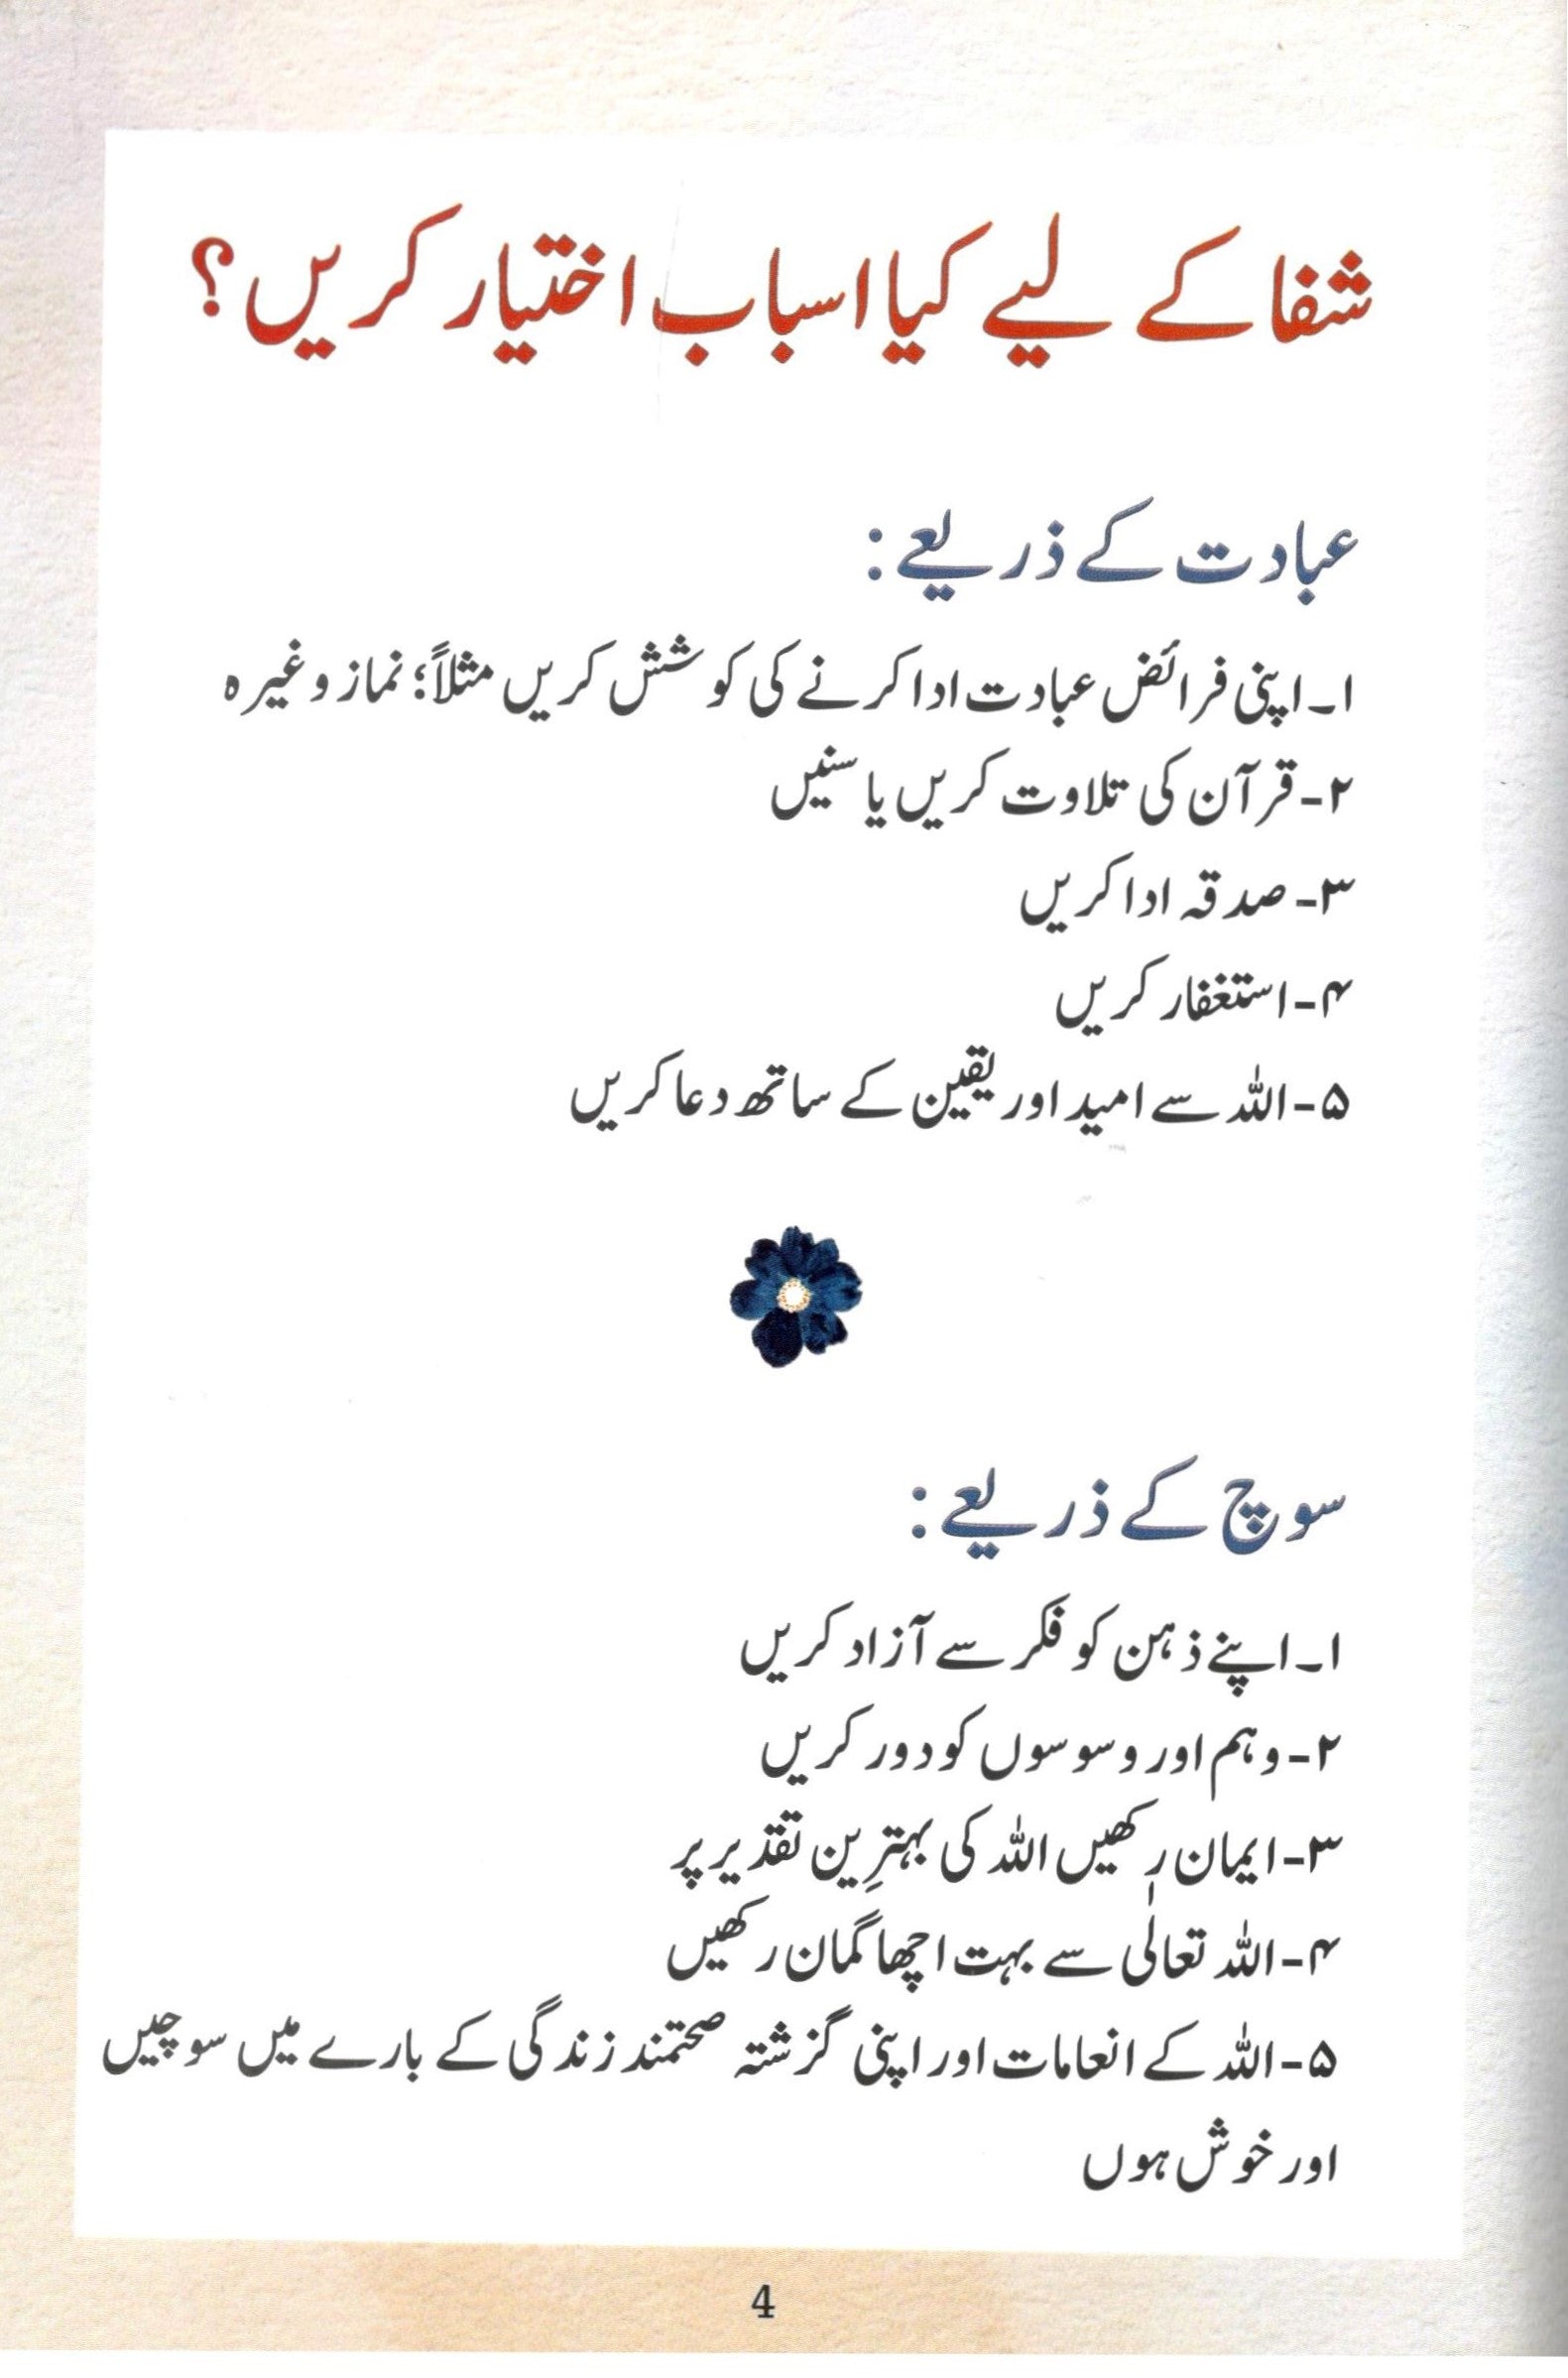 شفا کے لیے کیا اسباب اختیار کریں؟
عبادت کے ذریعے:
۱۔اپنی فرائض عبادت ادا کرنے کی کوشش کریں مثلاً؛ نماز وغیرہ
۲-قرآن کی تلاوت کریں یا سنیں
۳-صدقہ ادا کریں
۴-استغفار کریں
۵-اللہ سے امید اور یقین کے ساتھ دعا کریں
سوچ کے ذریعے:
۱۔اپنے ذہن کو فکر سے آزاد کریں
۲-وہم اور وسوسوں کو دور کریں
۳-ایمان رکھیں اللہ کی بہترین تقدیر پر
۴-اللہ تعالٰی سے بہت اچھا گمان رکھیں
۵-اللہ کے انعامات اور اپنی گزشتہ صحتمند زندگی کے بارے میں سوچیں
اور خوش ہوں
4